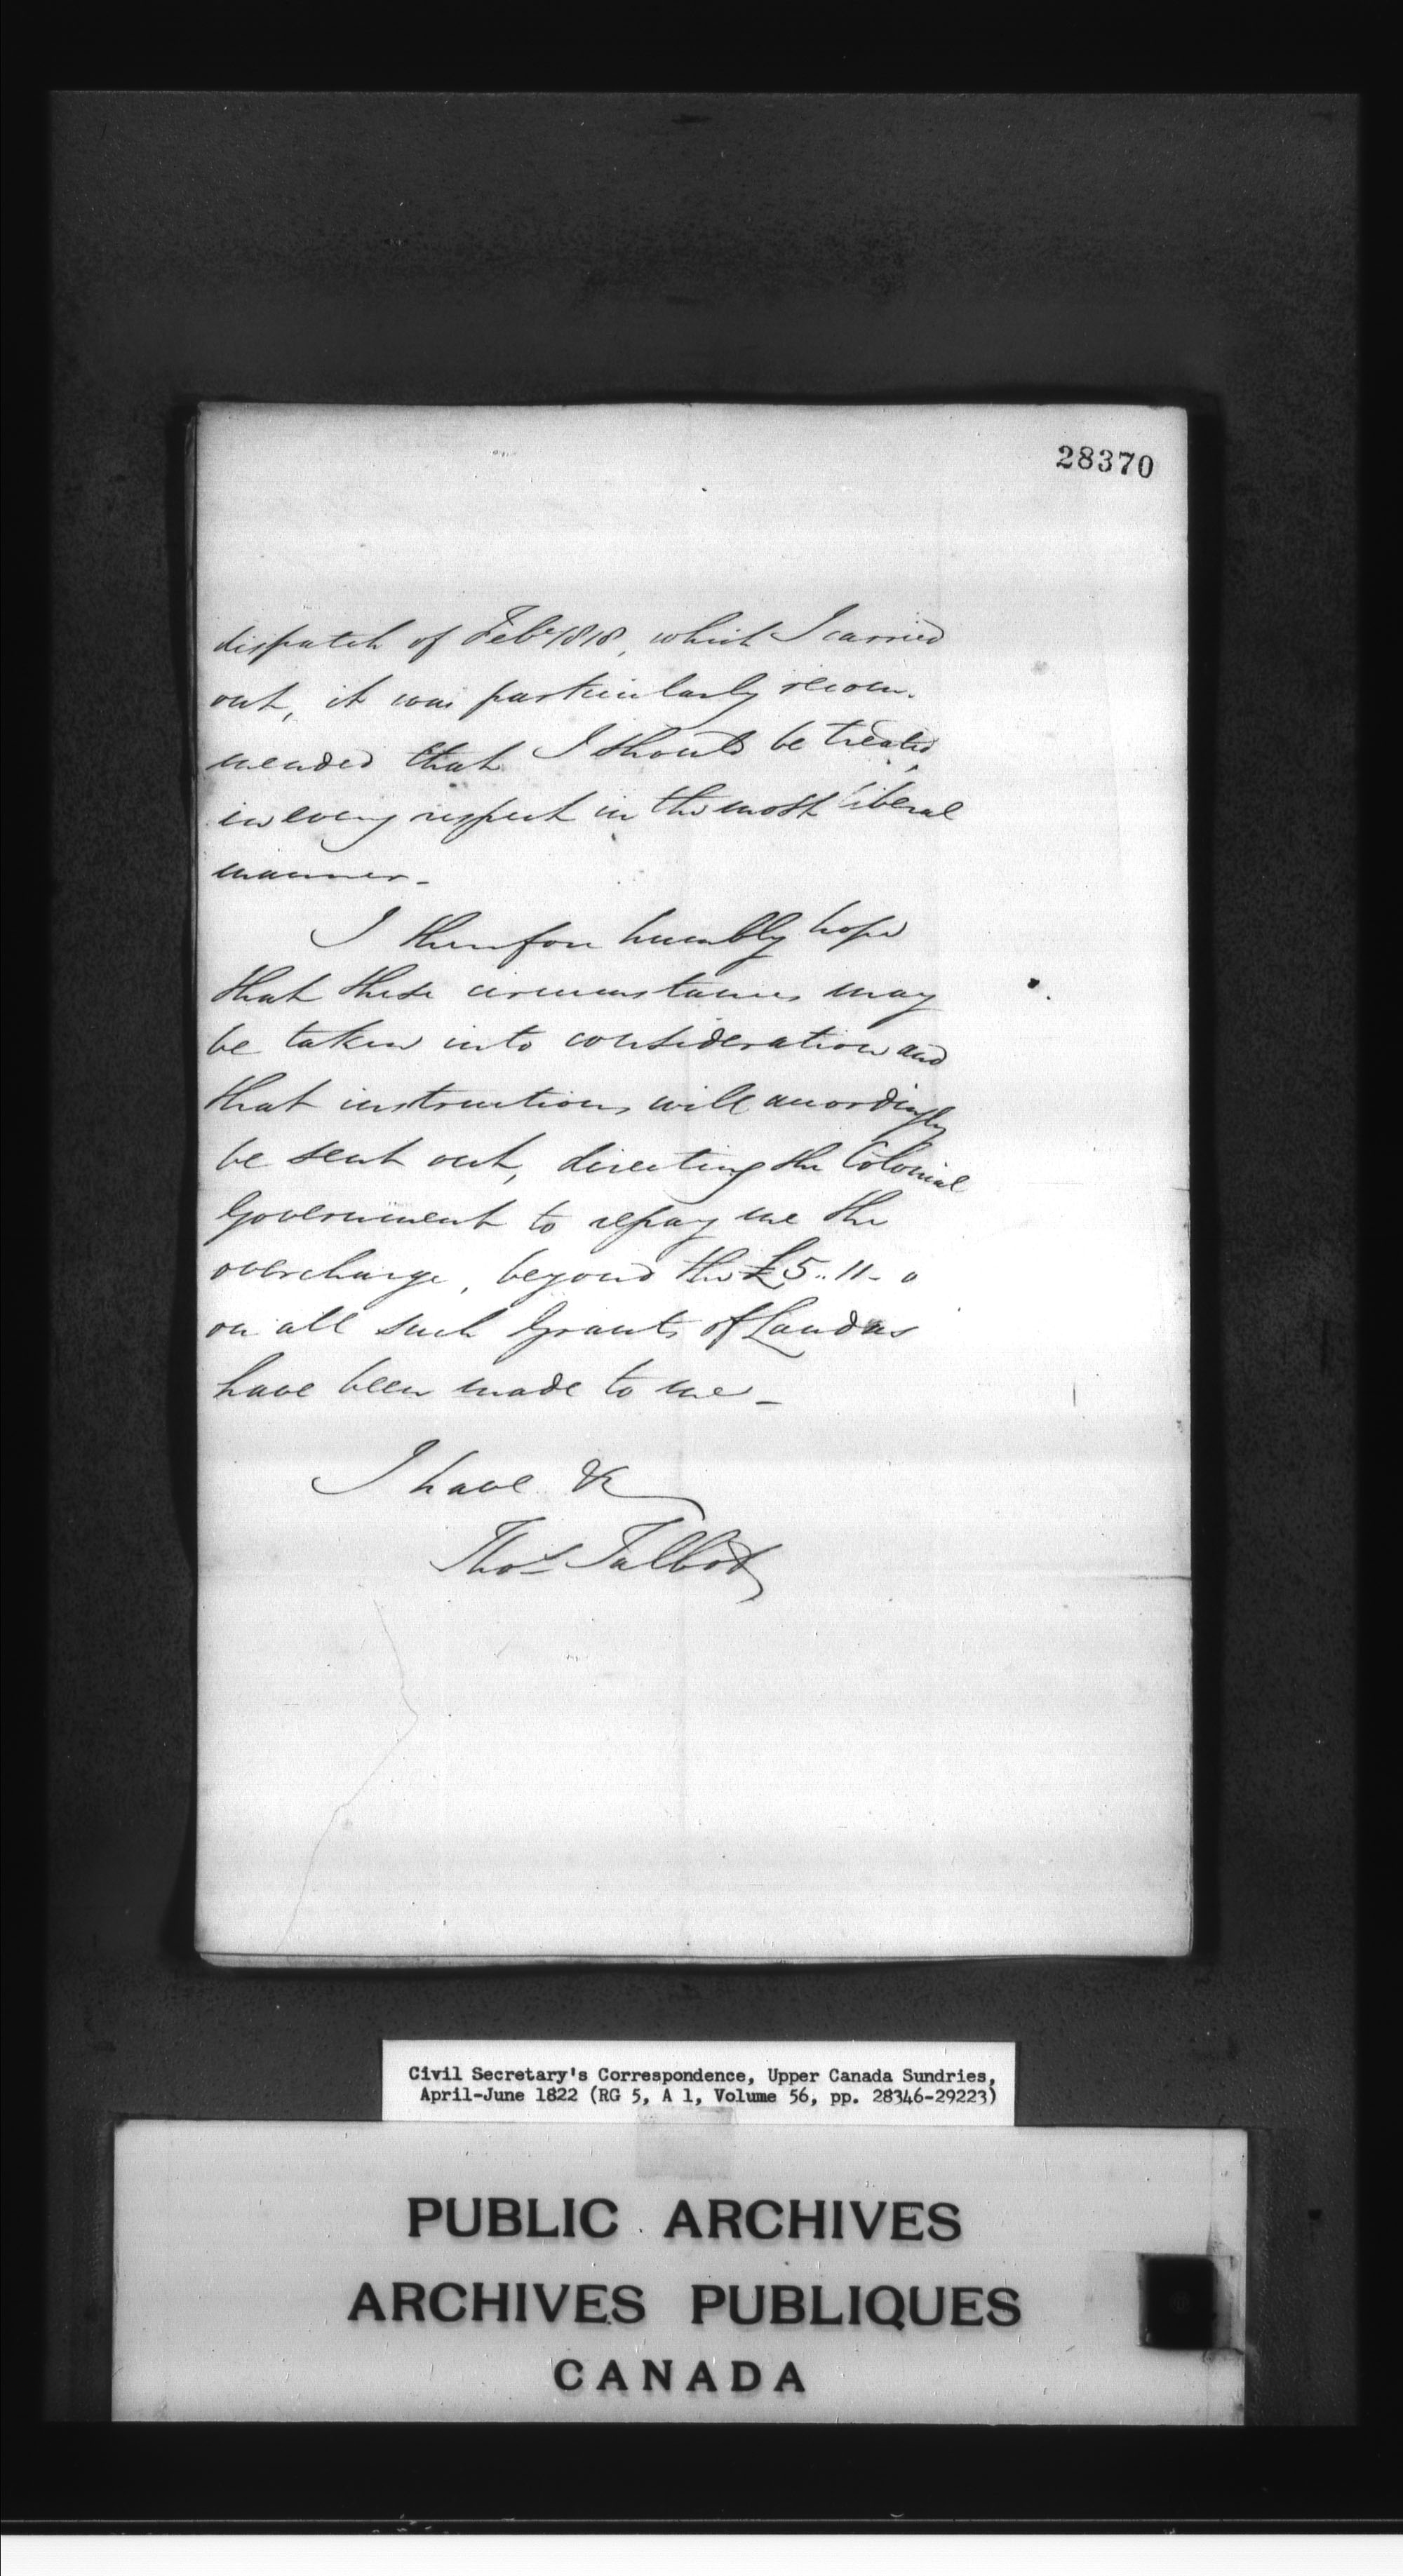 28370
dispatch of Feby 1818, which I carried
out, it was particularly recom-
mended that I should be treated,
in every respect in the most liberal
manner -
I therefore humbly hope
that these circumstances may
be taken into consideration and
that instructions will accordingly
be sent out, directing the Colonial
Government to repay me the
overcharge, beyond the £5.. 11 - 0
on all such Grants of Land as
have been made to me -
I have &c
Thos Talbot
Civil Secretary's Correspondence, Upper Canada Sundries,
April-June 1822 (RG 5, A 1, Volume 56, pp. 28346-29223)
PUBLIC ARCHIVES
ARCHIVES PUBLIQUES
CANADA